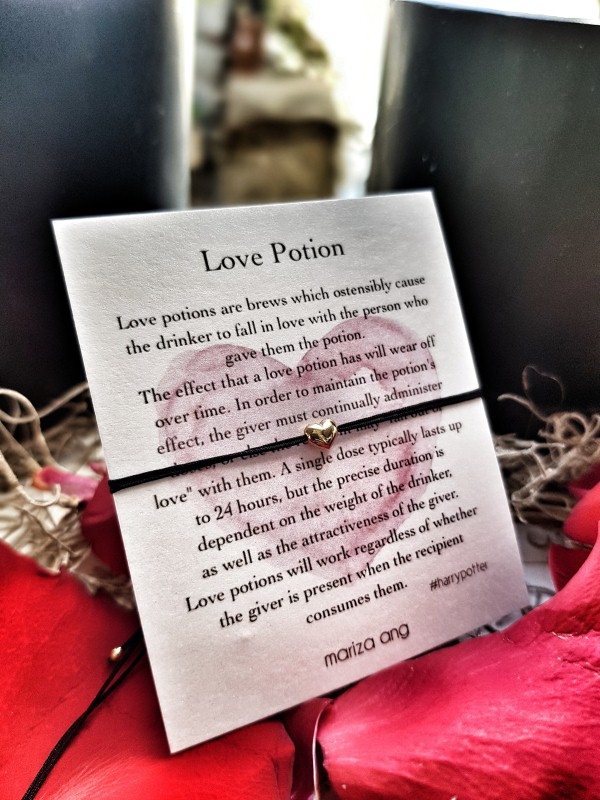 Love Potion
Love potions are brews which ostensibly cause
the drinker to fall in love with the person who
gave them the potion.
The effect that a love potion has will wear off
over time. In order to maintain the potion's
effect, the giver must continually administer
love" with them. A single dose typically lasts up
to 24 hours, but the precise duration is
dependent on the weight of the drinker,
as well as the attractiveness of the giver.
Love potions will work regardless of whether
the giver is present when the recipient
consumes them.
#harrypotter
mariza ang